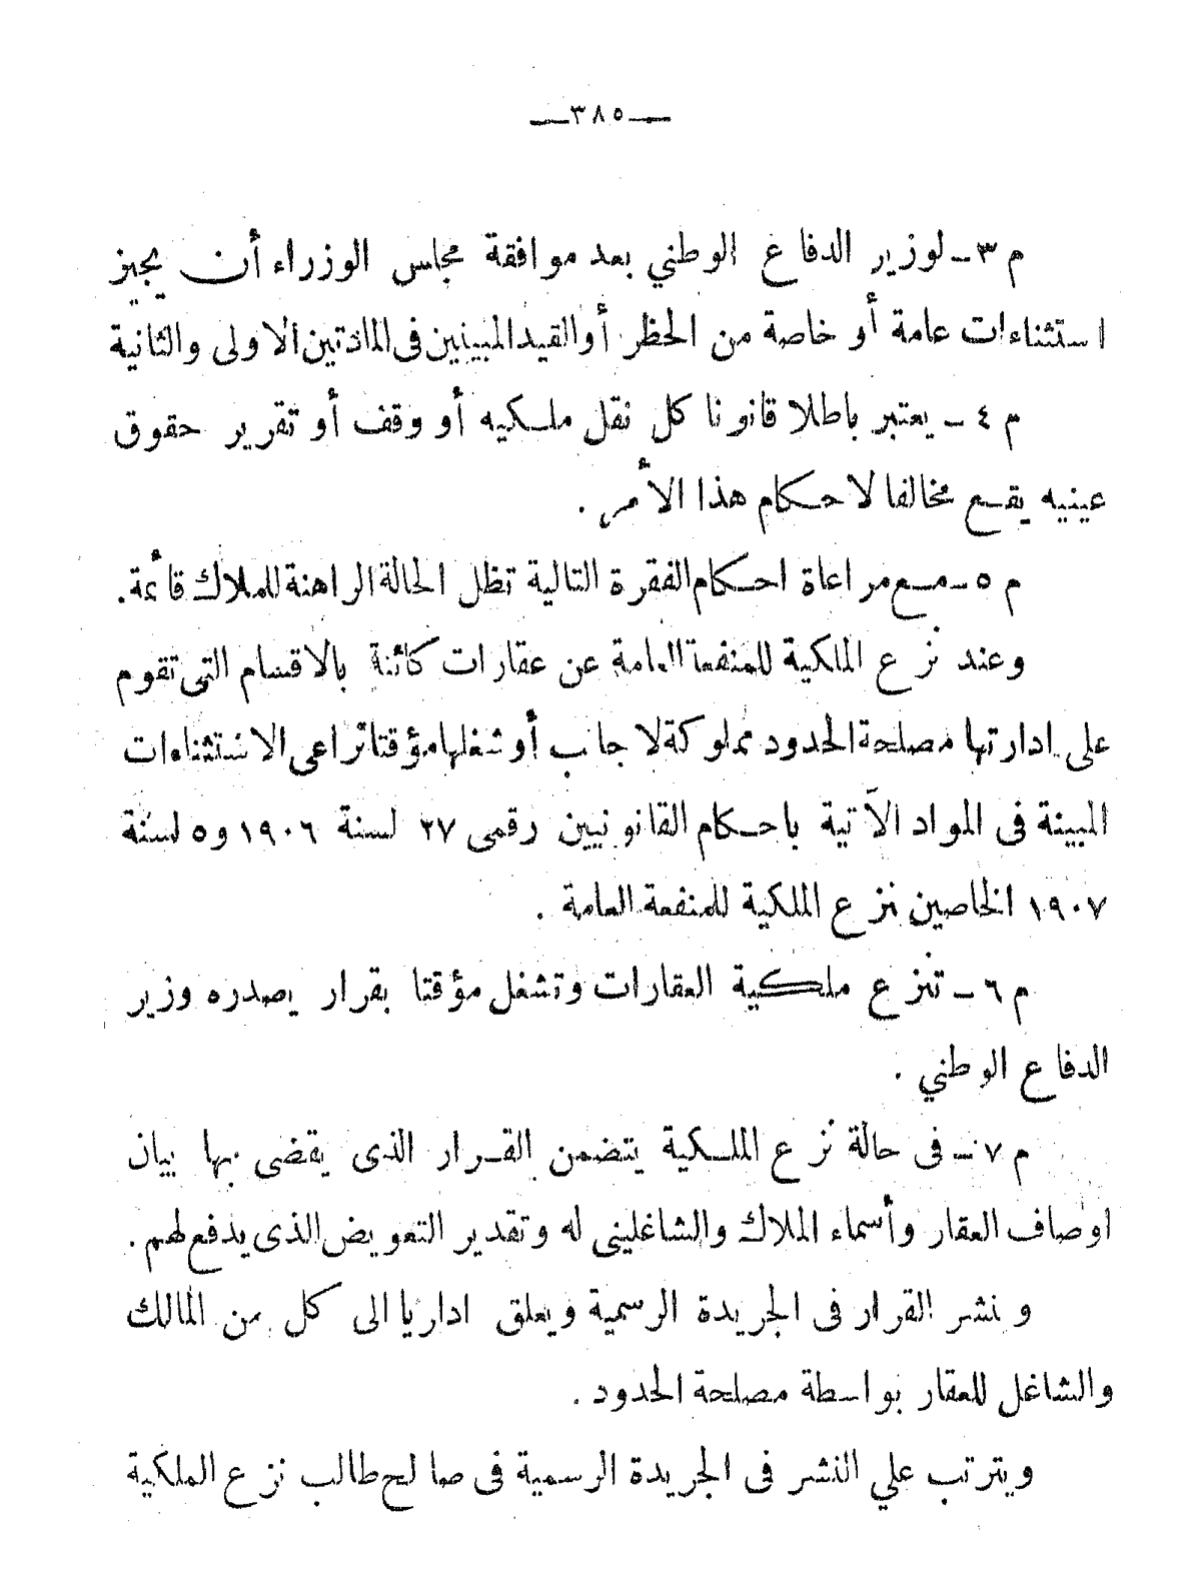 —٣٨٥—
م ٣ — لوزير الدفاع الوطني بعد موافقة مجلس الوزراء أن يجيز
استثناءات عامة أو خاصة من الحظر أو القيد المبينين فى المادتين الاولى والثانية
م ٤ — يعتبر باطلا قانونا كل نقل ملكيه أو وقف أو تقرير حقوق
عينيه يقع مخالفا لاحكام هذا الأمر .
م ٥ — مع مراعاة احكام الفقرة التالية تظل الحالة الراهنة للملاك قائمة .
وعند نزع الملكية للمنفعة العامة عن عقارات كائنة بالاقسام التى تقوم
على ادارتها مصلحة الحدود مملوكة لاجانب أو شغلها مؤقتا تراعى الاستثناءات
المبينة فى المواد الآتية باحكام القانونيين رقمى ٢٧ لسنة ١٩٠٦ و٥ لسنة
١٩٠٧ الخاصين بنزع الملكية للمنفعة العامة .
م ٦ — تنزع ملكية العقارات وتشغل مؤقتا بقرار يصدره وزير
الدفاع الوطني .
م ٧ — فى حالة نزع الملكية يتضمن القرار الذى يقضى بها بيان
اوصاف العقار وأسماء الملاك والشاغلينى له وتقدير التعويض الذى يدفع لهم .
وينشر القرار فى الجريدة الرسمية ويعلق اداريا الى كل من المالك
والشاغل للعقار بواسطة مصلحة الحدود .
ويترتب علي النشر فى الجريدة الرسمية فى صالح طالب نزع الملكية